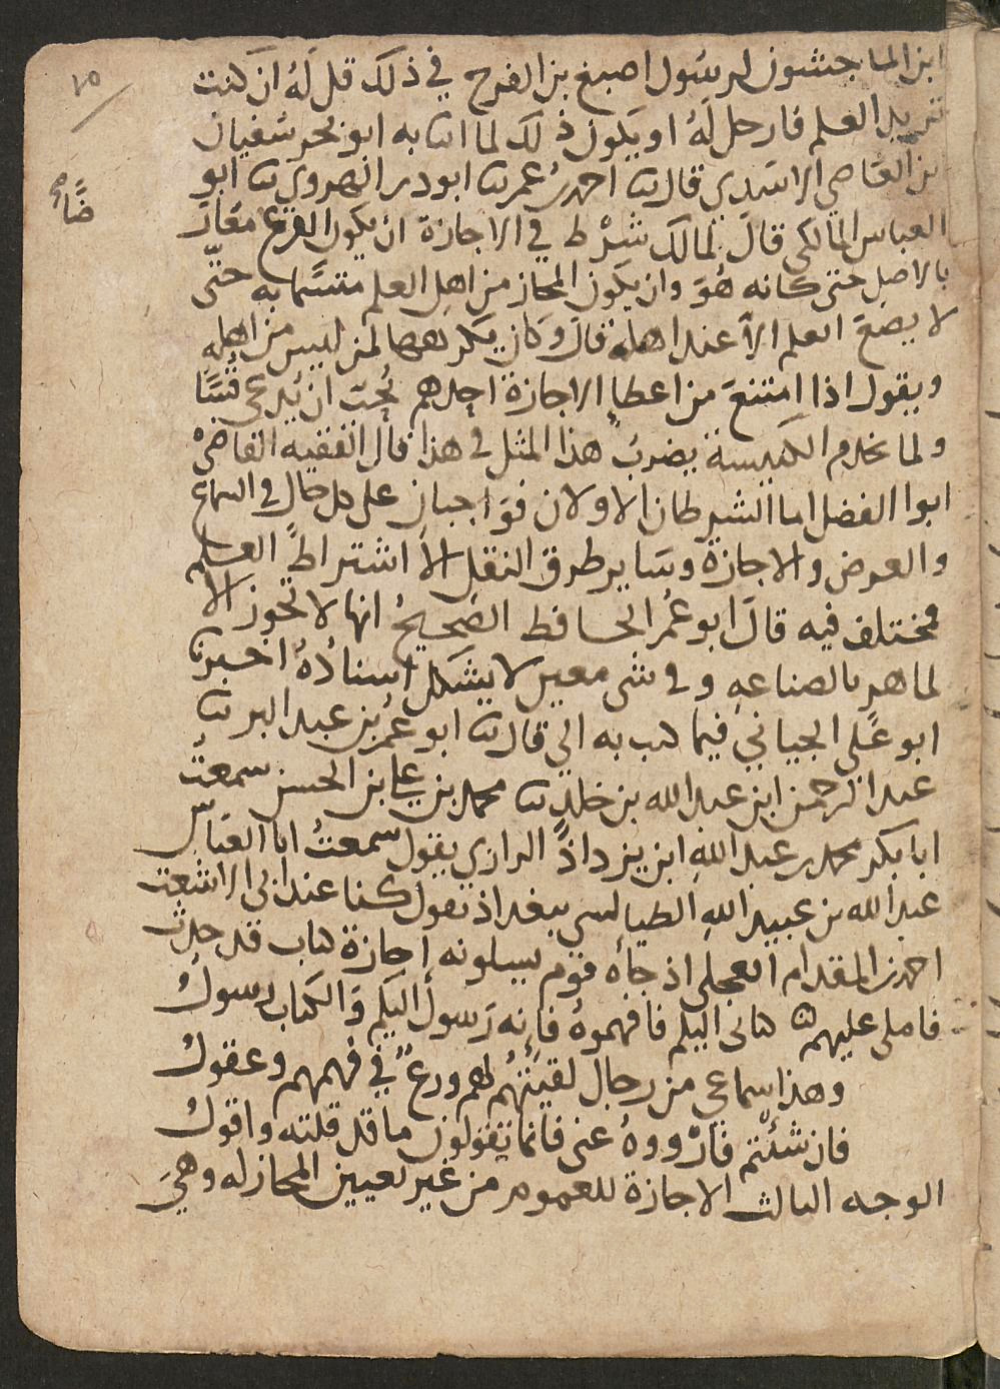 ١٥
ابن الماجشون لرسول اصبغ بن الفرج في ذلك قل له ان كنت
تريد العلم فارحل له او يكون ذلك لما انا به ابو بحر سفيان
بن العاصي الاسدي قال نا احمد بن عمر نا ابو ذر الهروي نا ابو
العباس المالكي قال لمالك شرط في الاجازة ان يكون الفرع معارضًا صح
بالاصل حتى كانه هو وان يكون المجاز من اهل العلم متسما به حتى
لا يضع العلم الا عند اهله قال وكان يكرهها لمن ليس من اهله
ويقول اذا امتنع من اعطا الاجازة احدهم يحب ان يدعى قسًّا
ولما يخدم الكنيسة يضرب هذا المثل في هذا قال الفقيه القاضي
ابوا الفضل اما الشرطان الاولان فواجبان على كل حال في السماع
والعرض والاجازة وساير طرق النقل الا اشتراط العلم
فمختلف فيه قال ابو عمر الحافظ الصحيح انها لا تجوز الا
لماهر بالصناعه وفي شى معين لا يشكل اسناده اخبرنا
ابو علي الجياني فيما كتب به الي قال نا ابو عمر بن عبد البر نا
عبد الرحمن ابن عبد الله بن خلد نا محمد بن علي بن الحسن سمعت
ابا بكر محمد بن عبد الله ابن يزداذ الرازي يقول سمعت ابا العباس
عبد الله بن عبيد الله الطيالسي ببغداذ يقول كنا عند ابى الاشعث
احمد بن المقدام العجلي اذ جاه قوم يسلونه اجازة كتاب قد حدث
فاملى عليهم كتابى اليكم فافهموه فانه رسولى اليكم والكتاب رسول
وهذا سماعي من رجال لقيتهم لهم ورع في فهمهم وعقول
فان شئتم فارووه عني فانما تقولون ما قد قلته واقول
الوجه الثالث الاجازة للعموم من غير تعيين المجاز له وهي